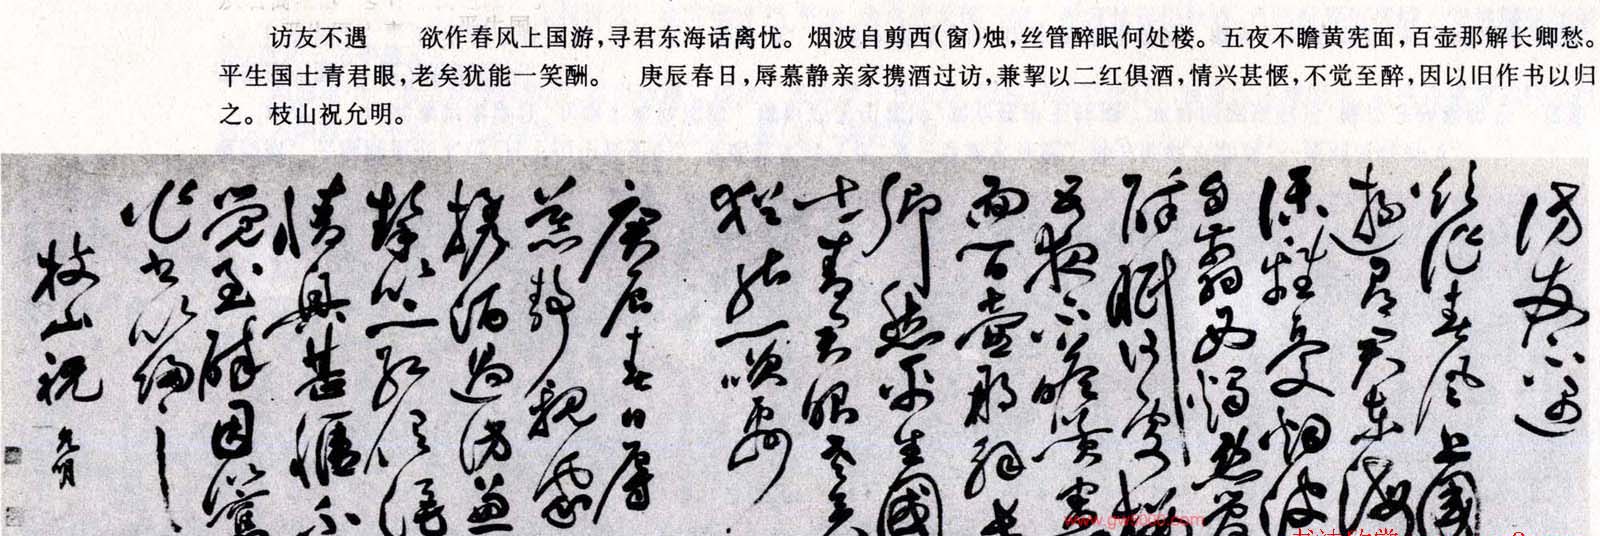 访友不遇　　欲作春风上国游,寻君东海话离忧。烟波自剪西(窗)烛,丝管醉眠何处楼。五夜不瞻黄宪面,百壶那解长卿愁。
平生国士青君眼,老矣犹能一笑酬。　庚辰春日,辱慕静亲家携酒过访,兼挈以二红俱酒,情兴甚惬,不觉至醉,因以旧作书以归
之。枝山祝允明。
訪友不遇
欲作春風上國
遊尋君東海
話離憂烟波
自剪西燭絲管
醉眠何處樓
五夜不瞻黃憲
面百壺那解長
卿愁平生國
士青君眼老矣
猶能一笑酬
庚辰春日辱
慕靜親家
攜酒過訪兼
挈以二紅俱酒
情興甚愜不
覺至醉因以舊
作書以歸之
枝山祝允明